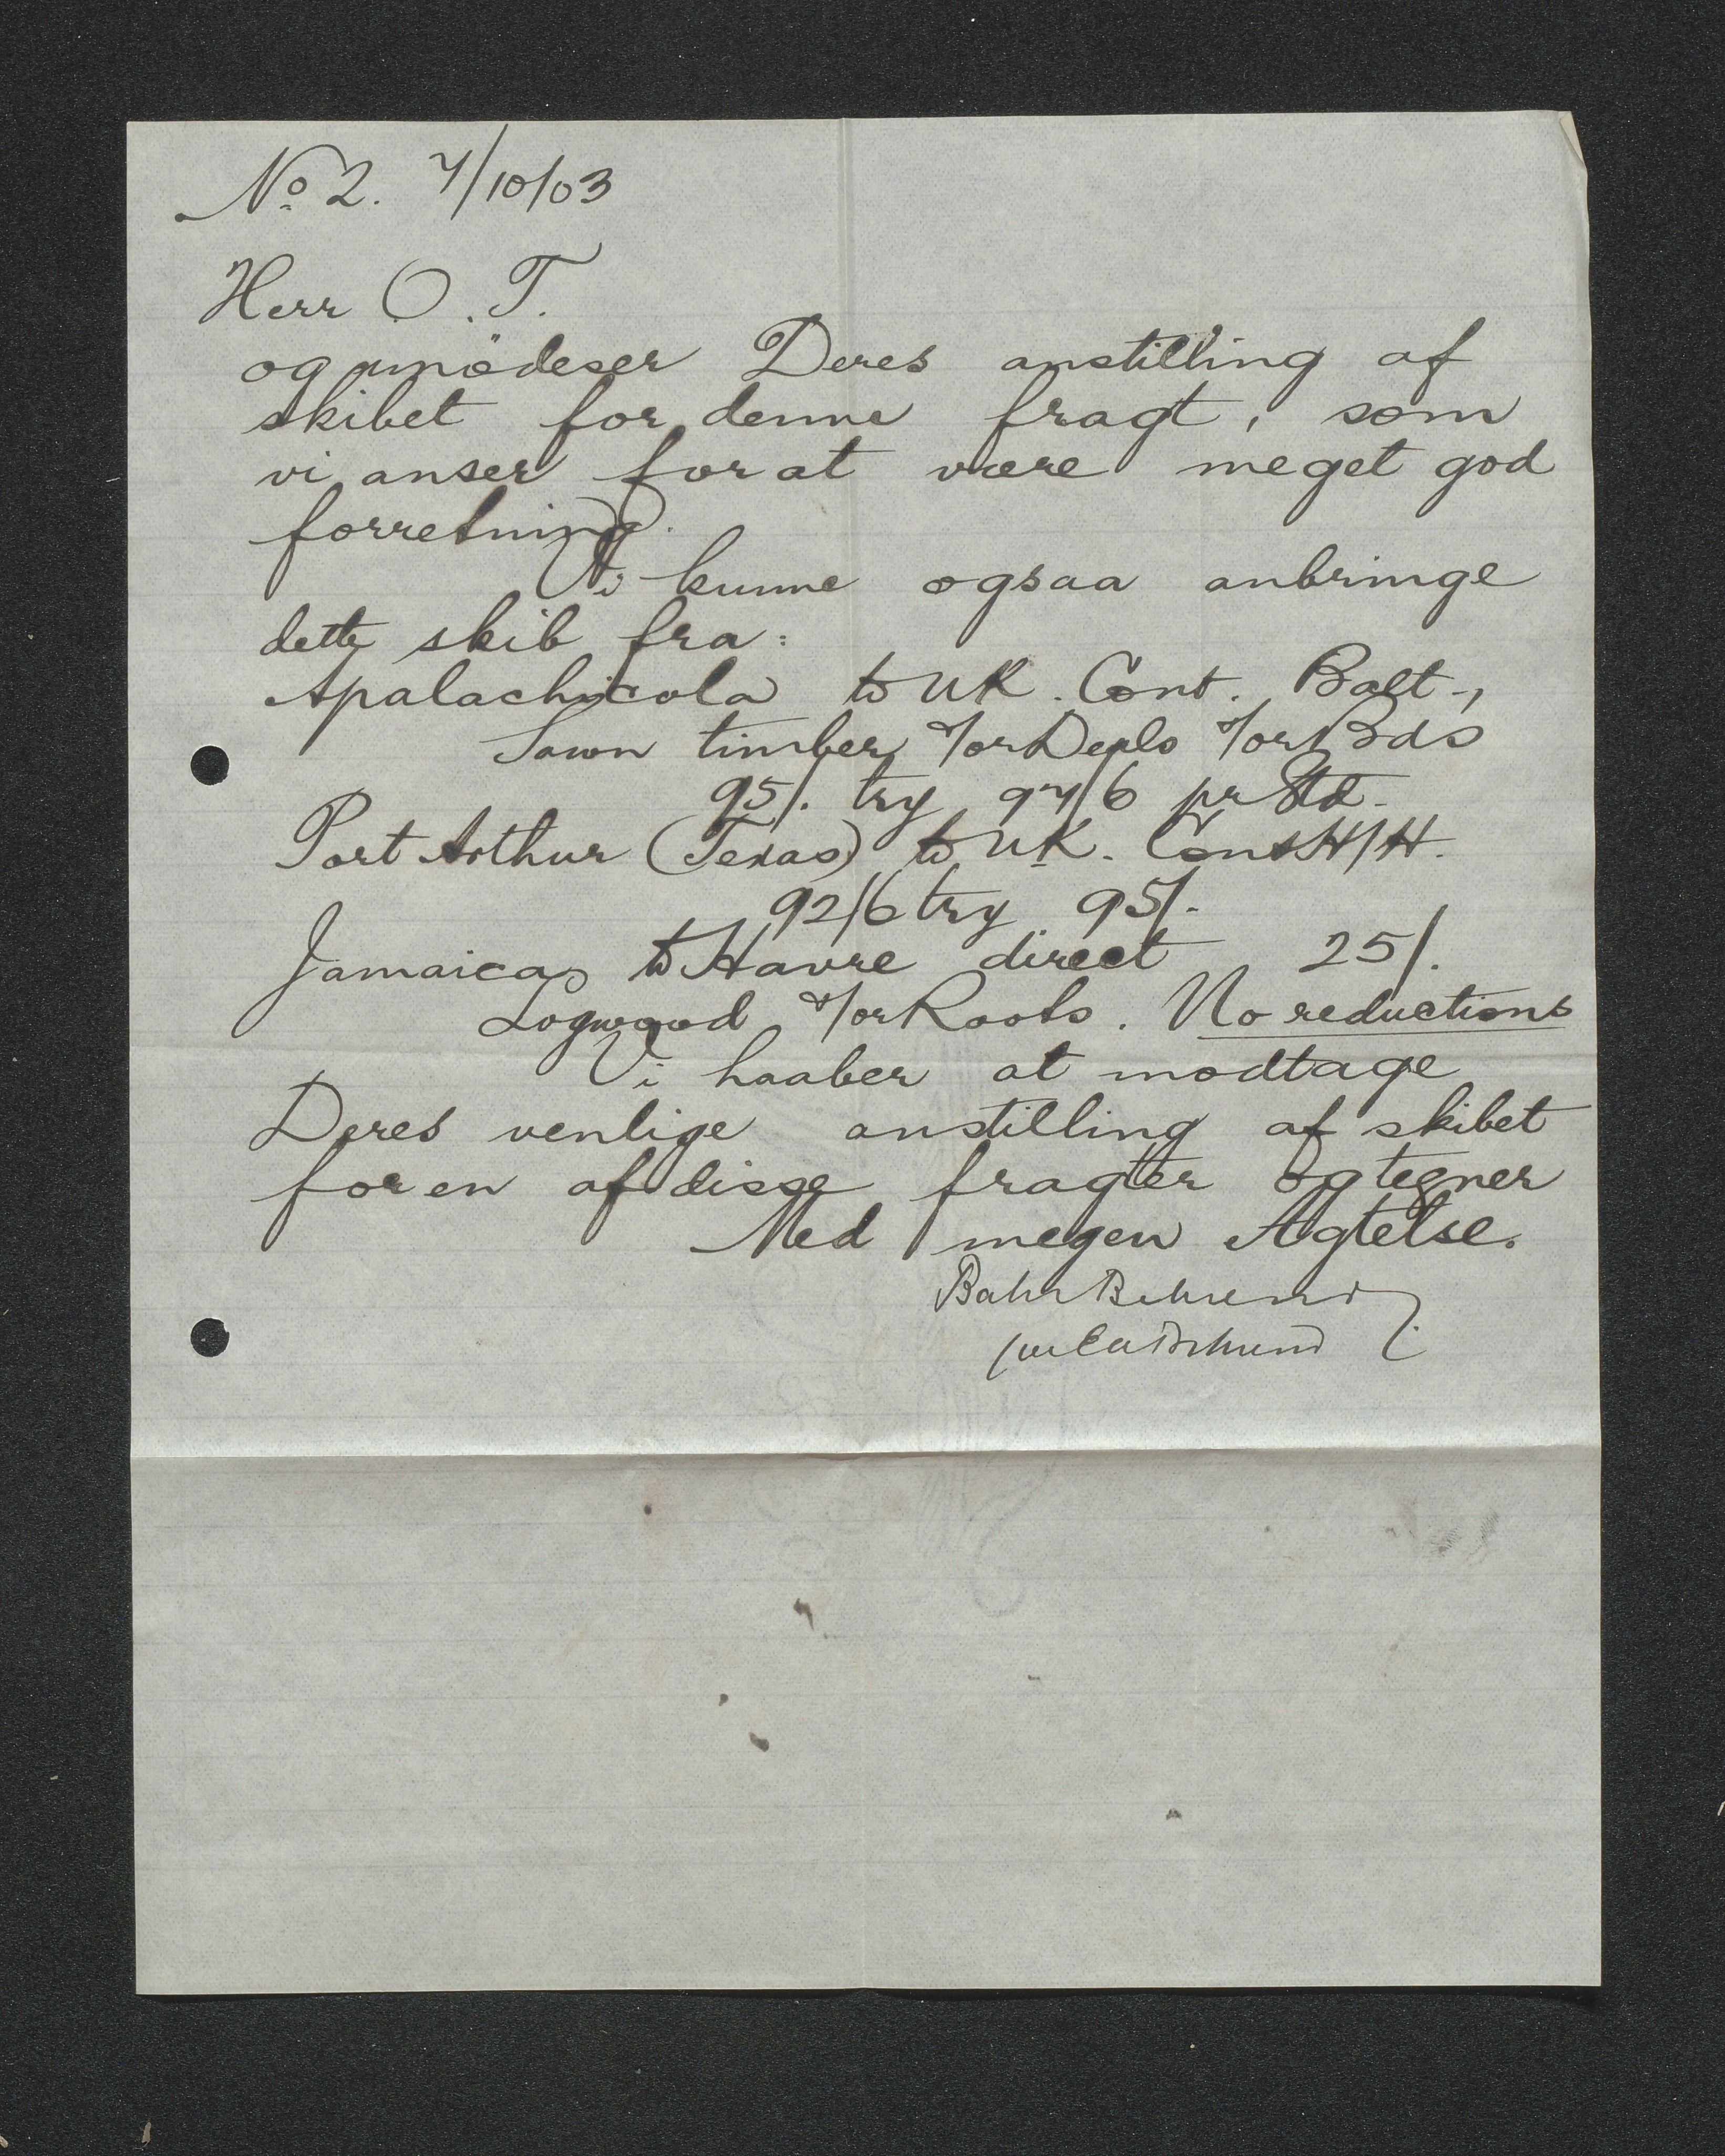 No 2. 7/10/03
Herr O. T.
og imødeser Deres anstilling af
skibet for denne fragt, som
vi anser for at være meget god
forretning.
Vi kunne ogsaa anbringe
dette skib fra:
Apalachicola to UK. Cont. Balt.,
Sawn timber &/or Deals &/or Bds
95/. try 97/6 pr Std.
Port Arthur (Texas) to UK. Cont H/H.
92/6 try 95/.
Jamaica to Havre direct 25/.
Logwood &/or Roots. No reductions
Vi haaber at modtage
Deres venlige anstilling af skibet
for en af disse fragter og tegner
Med megen Agtelse.
Bahr Behrend